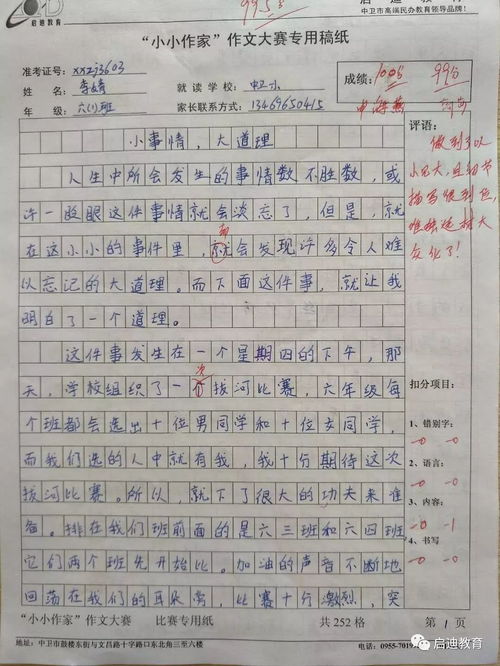 启迪教育
995分
启迪教育
中卫市高端民办教育领导品牌!
“小小作家”作文大赛专用稿纸
准考证号: xxzj3603
姓 名: 李婧
就 读 学 校:
年 级: 六(1)班
家长联系方式: 13469650415
成绩: 100分 99分
评语:
做到了以
小见大,且细节
描写很到位,
难点选材大
众化了!
小事情,大道理
人生中所会发生的事情数不胜数,或
许一眨眼这件事情就会淡忘了,但是,就
在这小小的事件里,就会发现许多令人难
以忘记的大道理。而下面这件事,就让我
明白了一个道理。
这件事发生在一个星期四的下午,那
天,学校组织了一个拔河比赛,六年级每
次
个班都会选出十位男同学和十位女同学,
而我们选的人中就有我,我十分期待这次
拔河比赛。所以,就下了很大的功夫来准
备。排在我们班前面的是六三班和六四班
它们两个班先开始比。加油的声音不断地
回荡在我们的耳朵旁,比赛十分激烈,突
扣分项目:
1、错别字:
-0 -0
2、语言:
-0 -0
3、内容:
-0 -1
4、书写
-0 -0
“小小作家”作文大赛 比赛专用纸 共 252 格 第 1 页
地址:中卫市鼓楼东街与文昌路十字路口东北角三至六楼
电话:0955-7019
启迪教育